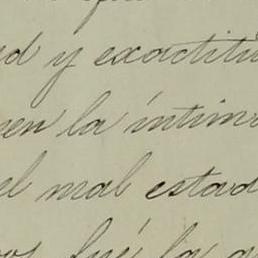 d y exactitu
en la íntim
el mal estad
fué la